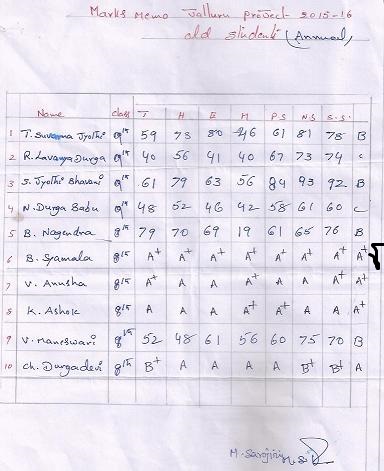 Marks Memo Valluru project 2015-16
old students (Annual)
Name class T H E M P.S N.S S.S.
1 T. Suvarna Jyothi 9th 59 78 80 46 61 81 78 B
2 R. Lavanya Durga 9th 40 56 41 40 67 73 74 C
3 S. Jyothi Bhavani 9th 61 79 63 56 84 93 92 B
4 N. Durga Babu 9th 48 52 46 42 58 61 60 C
5 B. Nagendra 8th 79 70 69 19 61 65 76 B
6 B. Syamala 8th A+ A A A+ A+ A+ A+ A+
7 V. Anusha 8th A+ A A A A A+ A+ A+
8 K. Ashok 8th A A A A+ A A A A+
9 V. Maneswari 8th 52 48 61 56 60 75 70 B
10 Ch. Durgadevi 8th B+ A A A A B+ B+ A
M. Sarojini